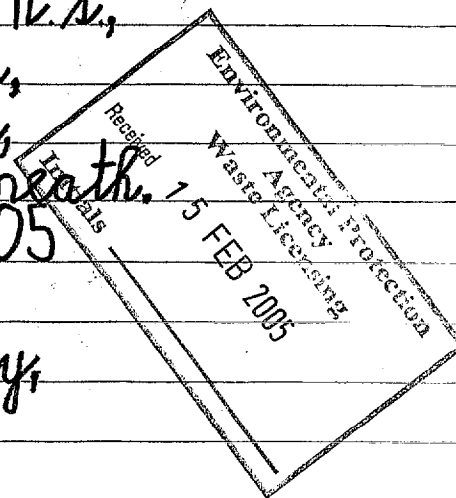 N.S.,
neath.
05
y,
Environmental Protection
Agency
Waste Licensing
Received
15 FEB 2005
Initials